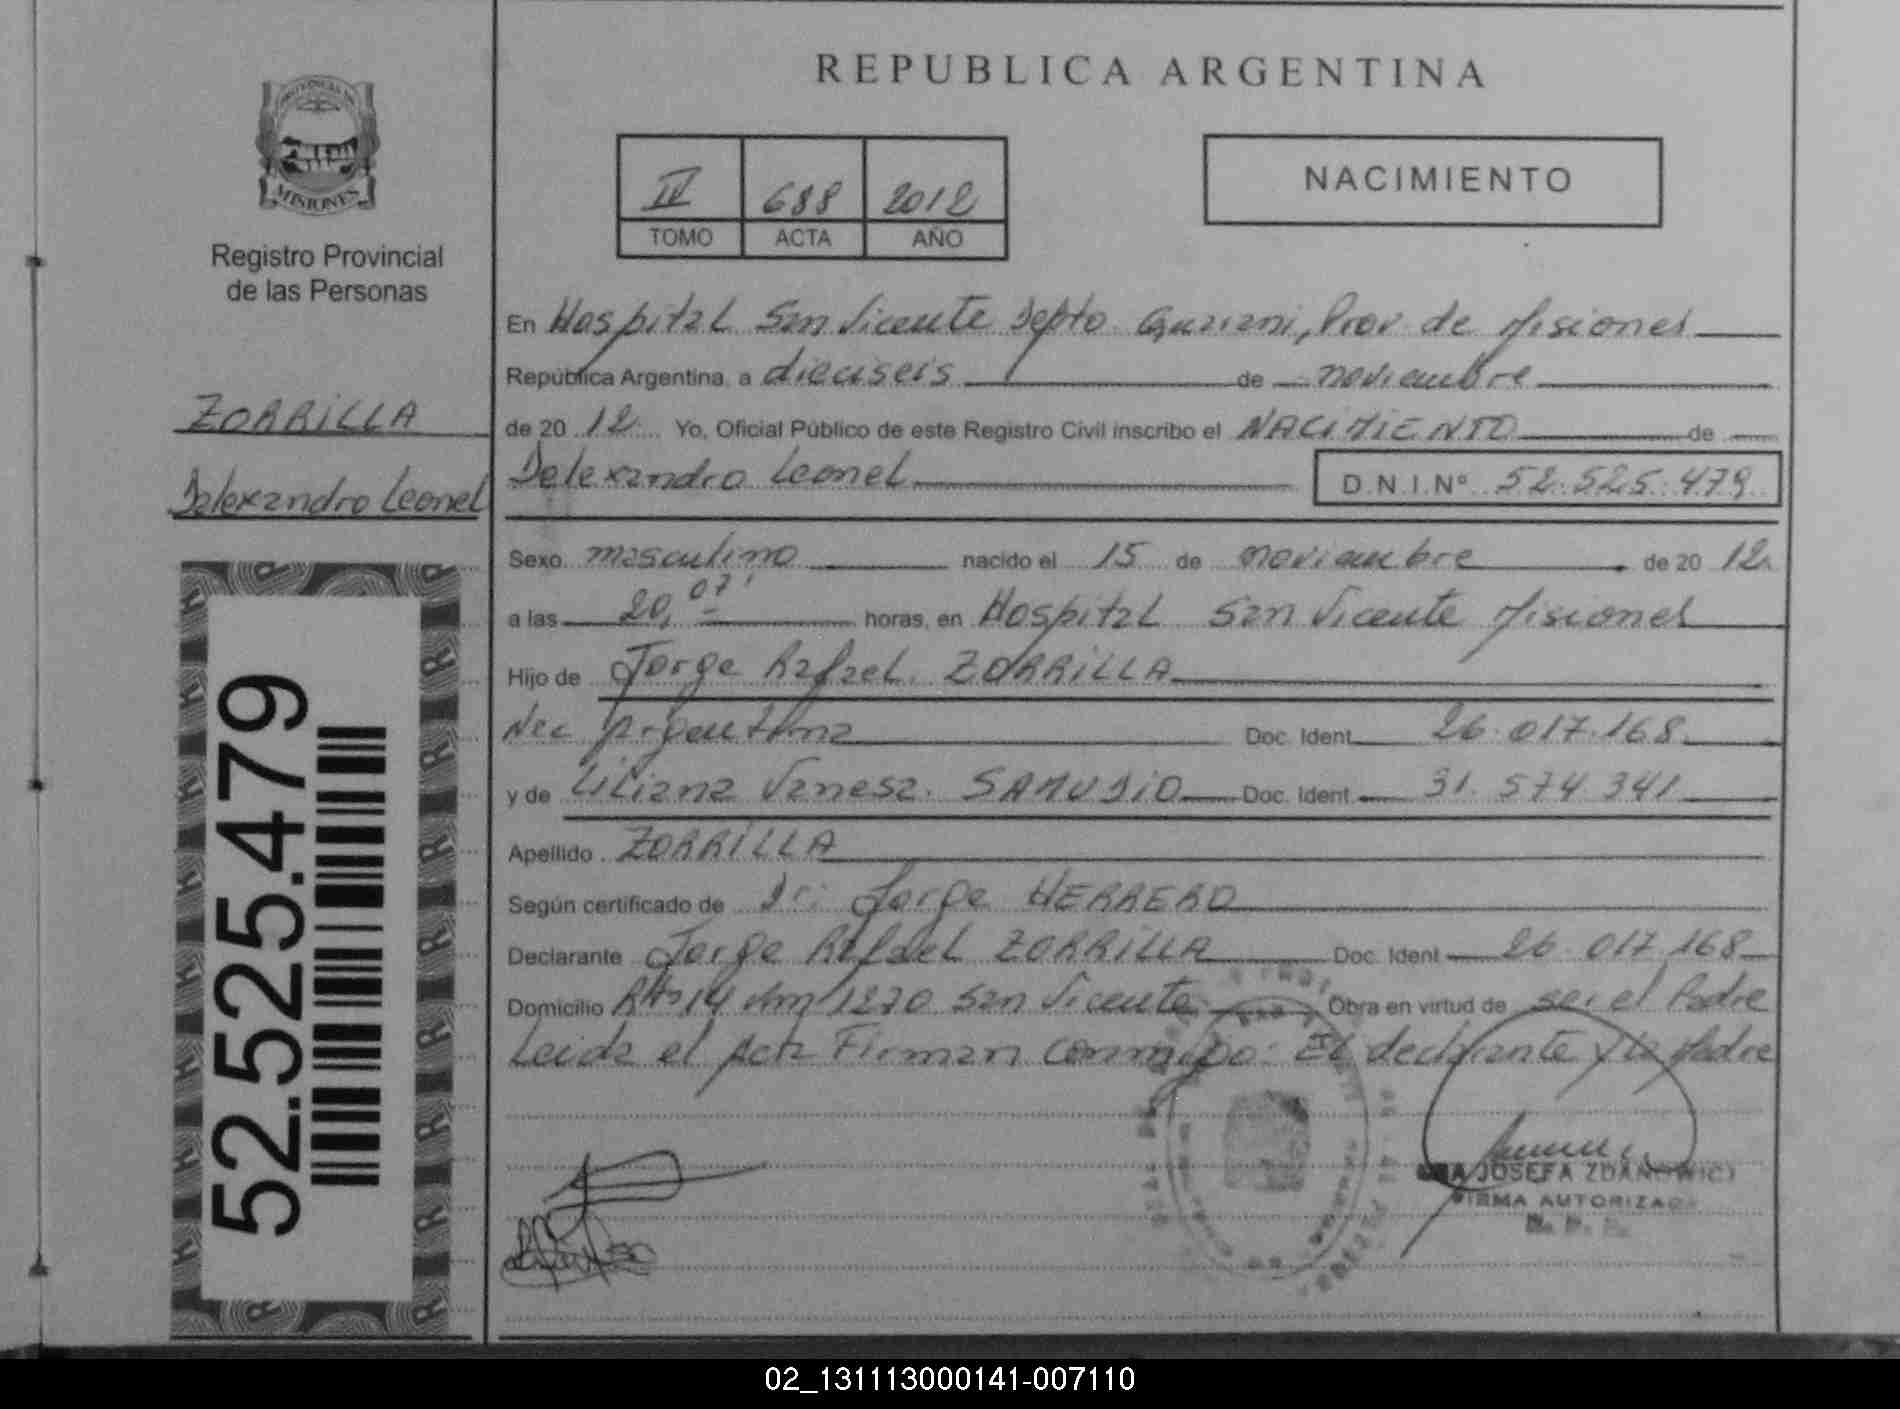 REPUBLICA ARGENTINA
IV 688 2012
TOMO ACTA AÑO
NACIMIENTO
MISIONES
Registro Provincial
de las Personas
ZORRILLA
Dalexandro Leonel
52.525.479
En Hospital San Vicente Depto Guarani, Prov. de Misiones
República Argentina, a dieciseis de noviembre
de 20 12 Yo, Oficial Público de este Registro Civil inscribo el NACIMIENTO de
Dalexandro Leonel D.N.I.Nº 52.525.479
Sexo masculino nacido el 15 de noviembre de 20 12
a las 20,07' horas, en Hospital San Vicente Misiones
Hijo de Jorge Rafael ZORRILLA
Nac Argentina Doc. Ident. 26.017.168
y de Liliana Vanesa SAMUDIO Doc. Ident. 31.574.341
Apellido ZORRILLA
Según certificado de Dr: Jorge HERRERO
Declarante Jorge Rafael ZORRILLA Doc. Ident 26.017.168
Domicilio Rta 14 Km 1270 San Vicente Obra en virtud de ser el Padre
Leida el Acta Firman conmigo: El declarante y la Madre
JOSEFA ZDANOWICZ
FIRMA AUTORIZADA
02_131113000141-007110